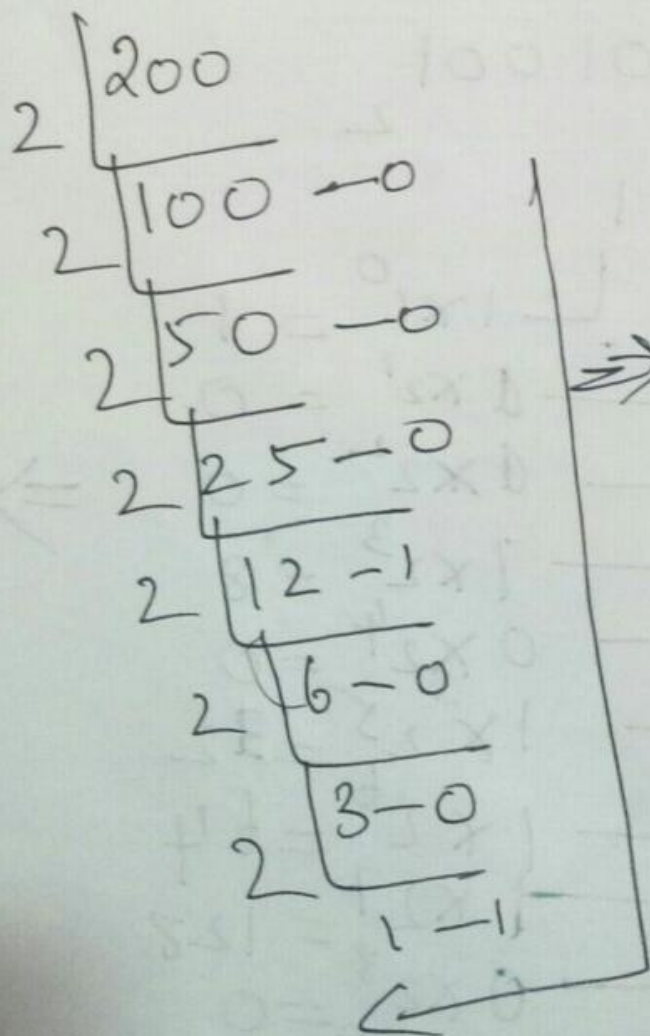 200
2 100 - 0
2 50 - 0
2 25 - 0
2 12 - 1
2 6 - 0
2 3 - 0
2 1 - 1